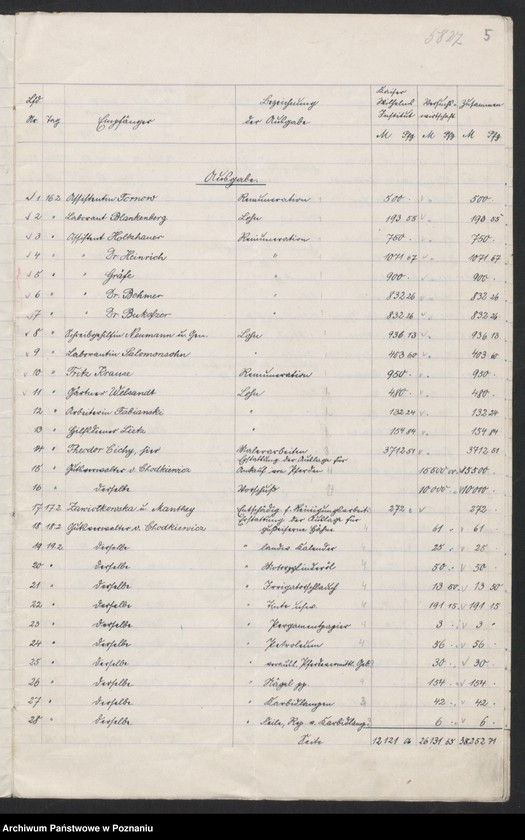 5827 5
Kaiser
Lfd Bezeichnung Wilhelms Versuchs- Zusammen
Nr. Tag Empfänger der Ausgabe Institut wirtschaft
M Pfg M Pfg M Pfg
Ausgabe.
1 16.2 Assistentin Fornow Remuneration 500 500
2 " Laborant Blankenberg Lohn 193 05 193 05
3 " Assistent Holtzhauer Remuneration 750 750
4 " " Dr. Heinrich " 1071 67 1071 67
5 " " Gräfe " 900 900
6 " " Dr. Behmer " 832 26 832 26
7 " " Dr. Bukofzer " 832 26 832 26
8 " Schreibgehilfin Neumann u. Gen. Lohn 936 13 936 13
9 " Laborantin Salomonsohn " 403 60 403 60
10 " Fritz Krause Remuneration 950 950
11 " Gärtner Lohn 480 480
12 " Arbeiterin Fabianski " 132 24 132 24
13 " Hilfsdiener Lietz " 154 84 154 84
14 " Theodor Cichy, hier Malerarbeiten 3712 51 3712 51
Erstattung der Auslage für
15 " Gutsverwalter v. Chodkiewicz Ankauf von Pferden
16 " Derselbe Vorschuß 10 000 10 000
17 17.2 Zawiolkowska u. Mantkey Entschädig. f. Reinigungsarbeit 272 272
Erstattung der Auslage für
18 18.2 Gutsverwalter v. Chodkiewicz gußeiserne 61 61
19 19.2 Derselbe " Kalender 25 25
20 " Derselbe " 50 50
21 " Derselbe " 13 50 13 50
22 " Derselbe " Tinte usw. 191 15 191 15
23 " Derselbe " Pergamentpapier 3 3
24 " Derselbe " Petroleum 56 56
25 " Derselbe " 30 30
26 " Derselbe " Nägel pp 154 154
27 " Derselbe " Karbidlampen 42 42
28 " Derselbe " Rep. v. Karbidlamp. 6 6
Seite 12121 26131 65 38252 71
Archiwum Państwowe w Poznaniu